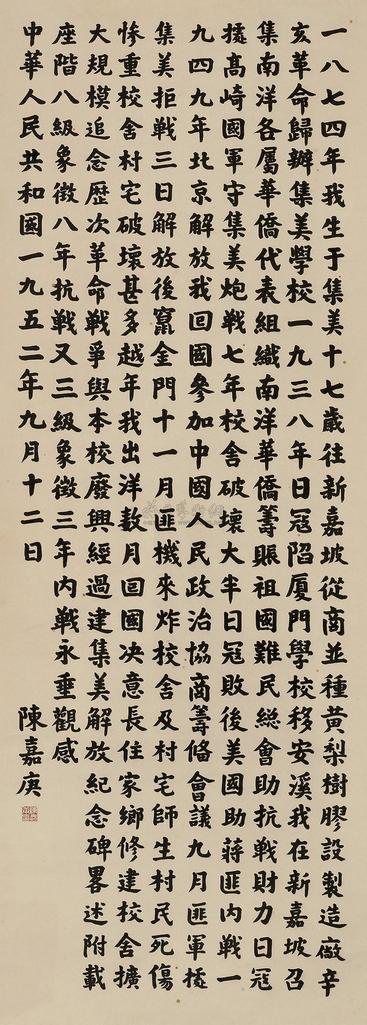 一八七四年我生于集美十七歲往新嘉坡從商並種黄梨樹膠設製造廠辛
亥革命歸辦集美學校一九三八年日冦陷厦門學校移安溪我在新嘉坡召
集南洋各屬華僑代表組織南洋華僑籌賑祖國難民總會助抗戰財力日冦
據高崎國軍守集美炮戰七年校舍破壞大半日冦敗後美國助蔣匪内戰一
九四九年北京解放我回國參加中國人民政治協商籌備會議九月匪軍據
集美拒戰三日解放後竄金門十一月匪機來炸校舍及村宅師生村民死傷
慘重校舍村宅破壞甚多越年我出洋数月回國决意長住家鄉修建校舍擴
大規模追念歷次革命戰爭與本校廢興經過建集美解放紀念碑畧述附載
座階八級象徵八年抗戰又三級象徵三年内戰永垂觀感
中華人民共和國一九五二年九月十二日 陳嘉庚